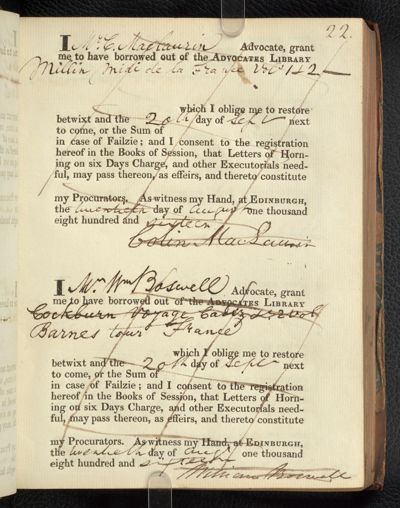 22.
I Mr C. Maclaurin Advocate, grant
me to have borrowed out of the ADVOCATES LIBRARY
Millin, Midi de la France Vols 1 & 2
which I oblige me to restore
betwixt and the 20th day of Sept next
to come, or the Sum of
in case of Failzie; and I consent to the registration
hereof in the Books of Session, that Letters of Horn-
ing on six Days Charge, and other Executorials need-
ful, may pass thereon, as effeirs, and thereto constitute
my Procurators. As witness my Hand, at EDINBURGH,
the twentieth day of August one thousand
eight hundred and sixteen
Colin MacLaurin
I Mr Wm Boswell Advocate, grant
me to have borrowed out of the ADVOCATES LIBRARY
Cockburn Voyage Cadiz
Barnes tour France
which I oblige me to restore
betwixt and the 20th day of Sept next
to come, or the Sum of
in case of Failzie; and I consent to the registration
hereof in the Books of Session, that Letters of Horn-
ing on six Days Charge, and other Executorials need-
ful, may pass thereon, as effeirs, and thereto constitute
my Procurators. As witness my Hand, at EDINBURGH,
the twentieth day of Augt one thousand
eight hundred and sixteen
William Boswell